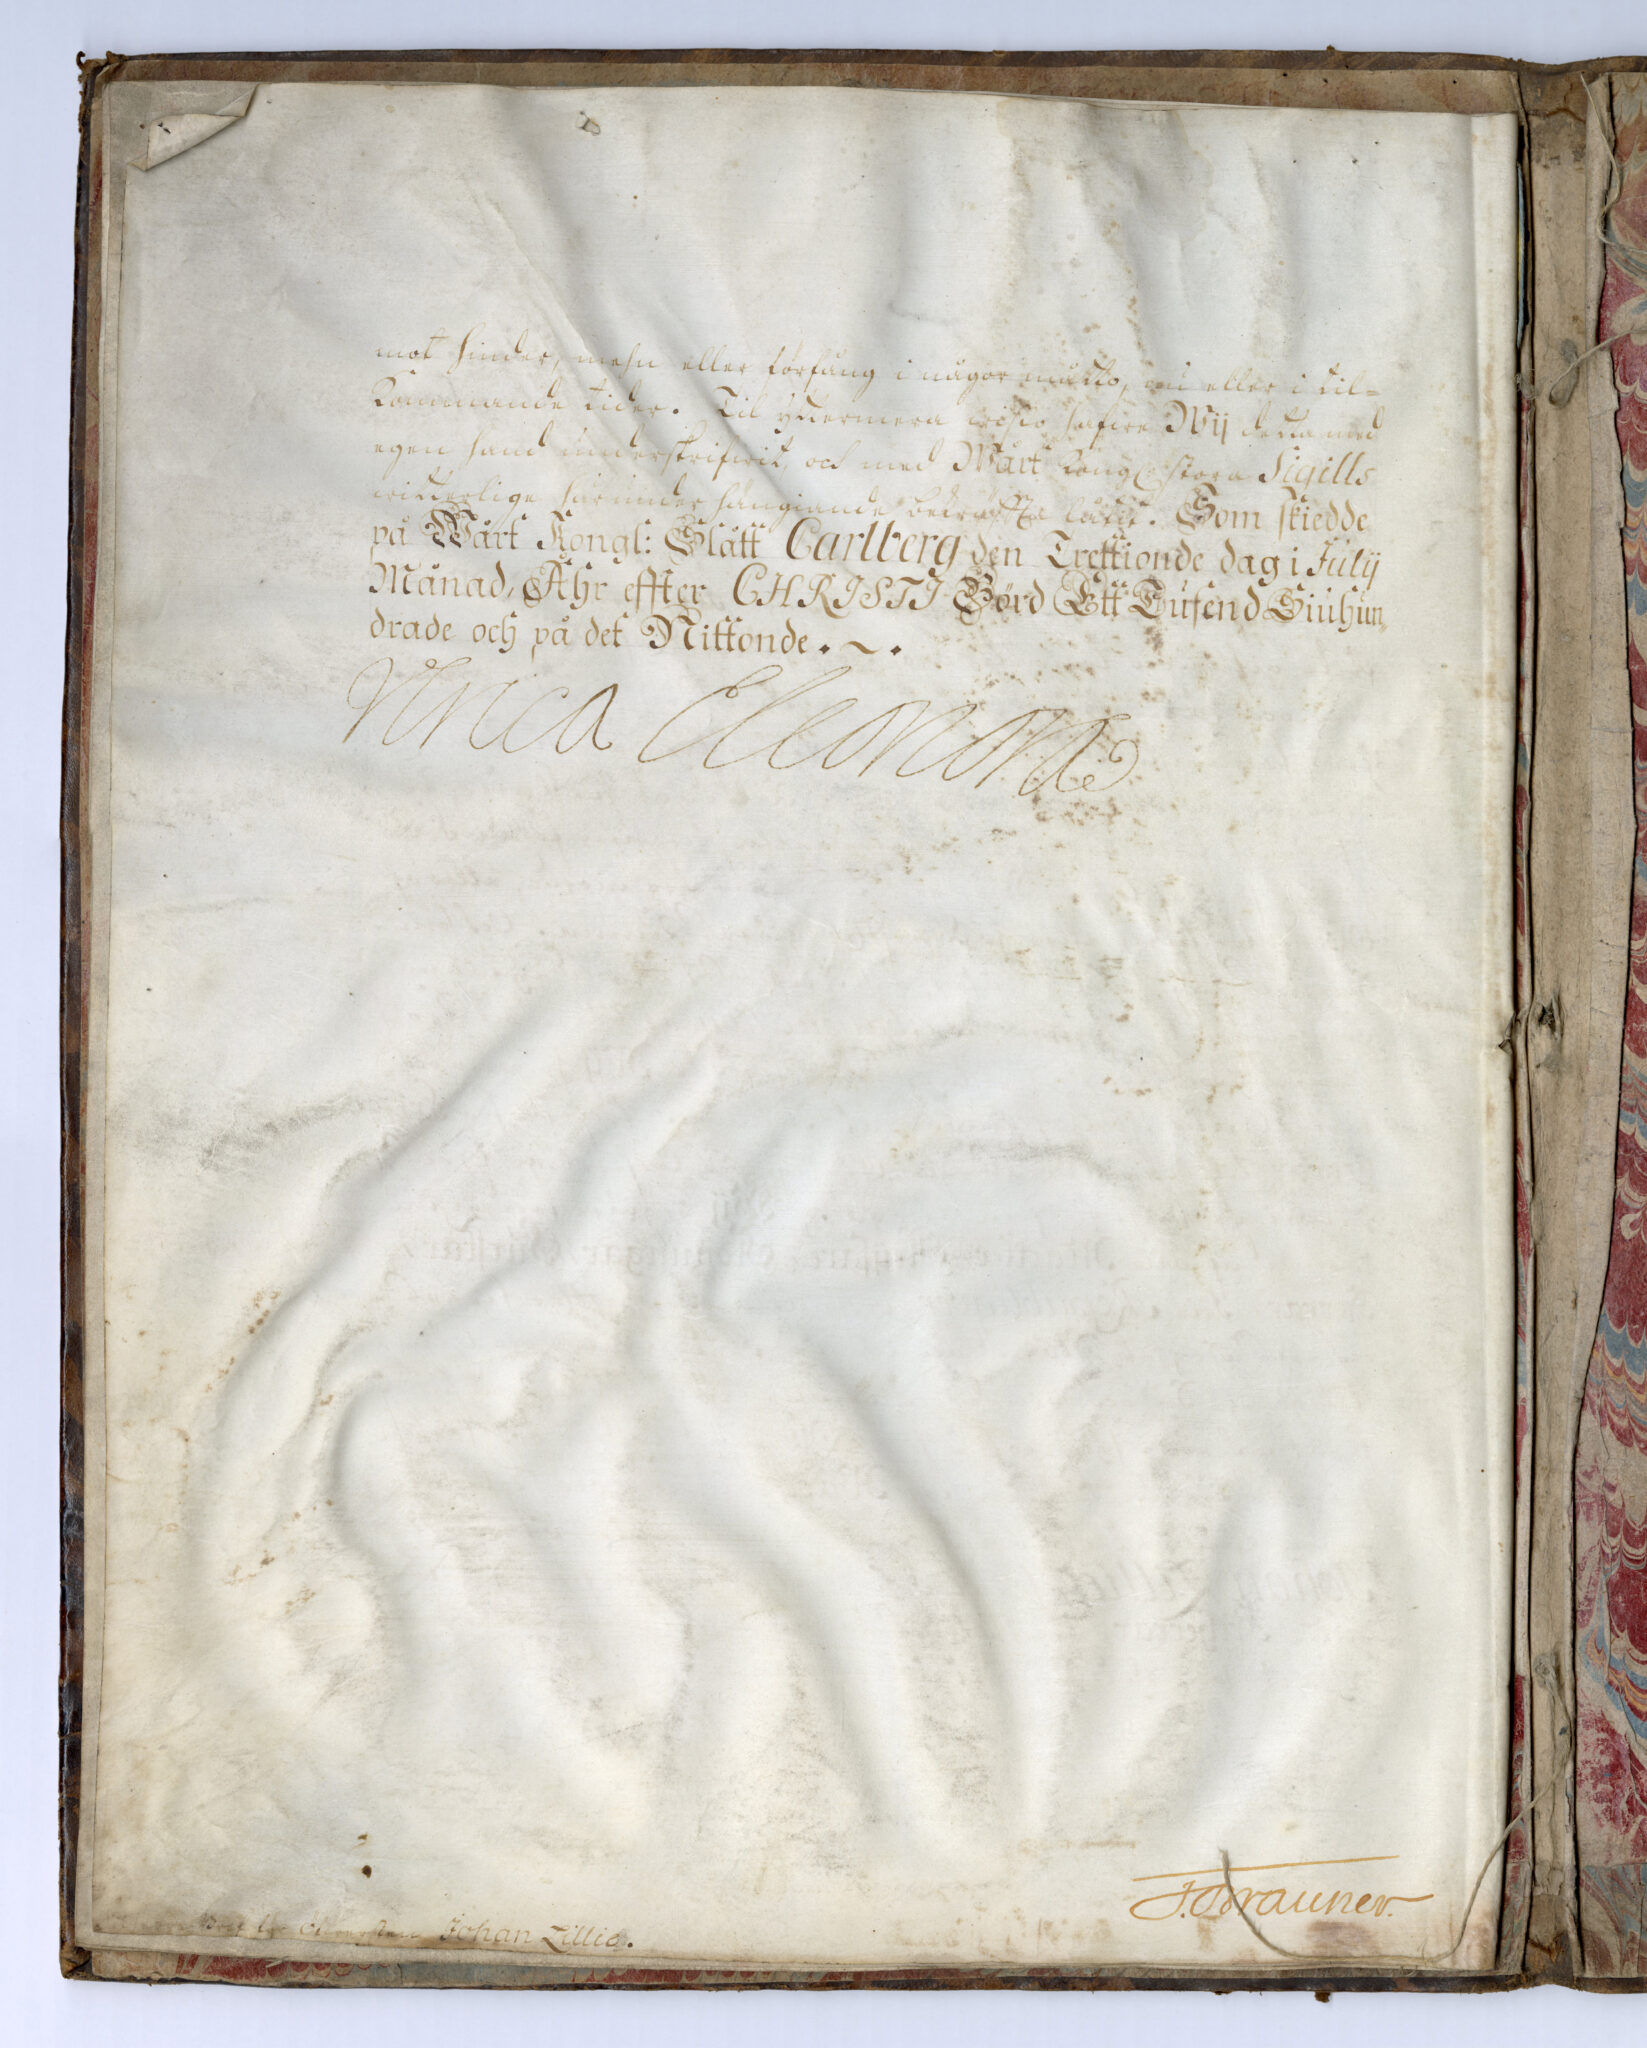 mot hinder, mehn eller förfång i någor måtto, nu eller i til=
Kommande tider. Til yttermera wisso hafwe Wij detta med
egen hand underskrifwit, och med Wårt Kongl. stora Sigills
witterlige härunder hängiande bekräffta låtit. Som skiedde
på Wårt Kongl: Slått Carlberg den Trettionde dag i Julij
Månad, Åhr effter CHRISTI Börd Ett Tusend Siuhun„
drade och på det Nittonde. ~ .
Ulrica Eleonora
F. Drauner.
för Öfwersten Johan Zillio.